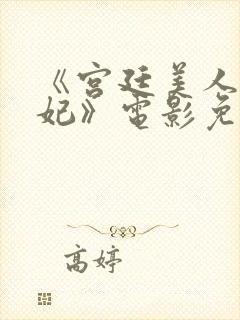 《宫廷美人
妃》电影免
高婷